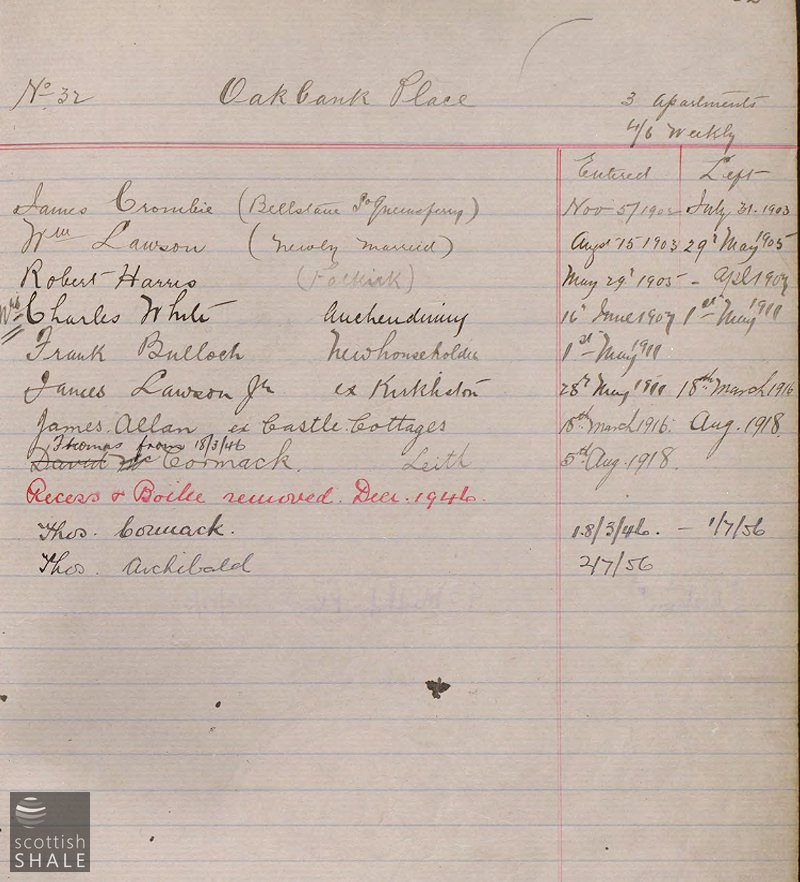 No 32 Oakbank Place 3 Apartments
4/6 Weekly
Entered Left
James Crombie (Bellstane So Queensferry) Nov 5/1902 July 31. 1903
Wm Lawson (newly married) Augst 15 1903 29th May 1905
Robert Harris (Falkirk) May 29th 1905 - Apl 1907
Mrs Charles White Auchendinny 16th June 1907 1st May 1911
Frank Bulloch New householder 1st May 1911
James Lawson Jr ex Kirkliston 28th May 1911 18th March 1916
James Allan ex Castle Cottages 18th March 1916. Aug. 1918.
Thomas from 18/3/46
David Mc Cormack. Leith 5th Aug. 1918.
Recess & Boiler removed. Decr. 1946.
Thos. Cormack. 18/3/46. - 1/7/56
Thos. Archibald 2/7/56
scottish
SHALE